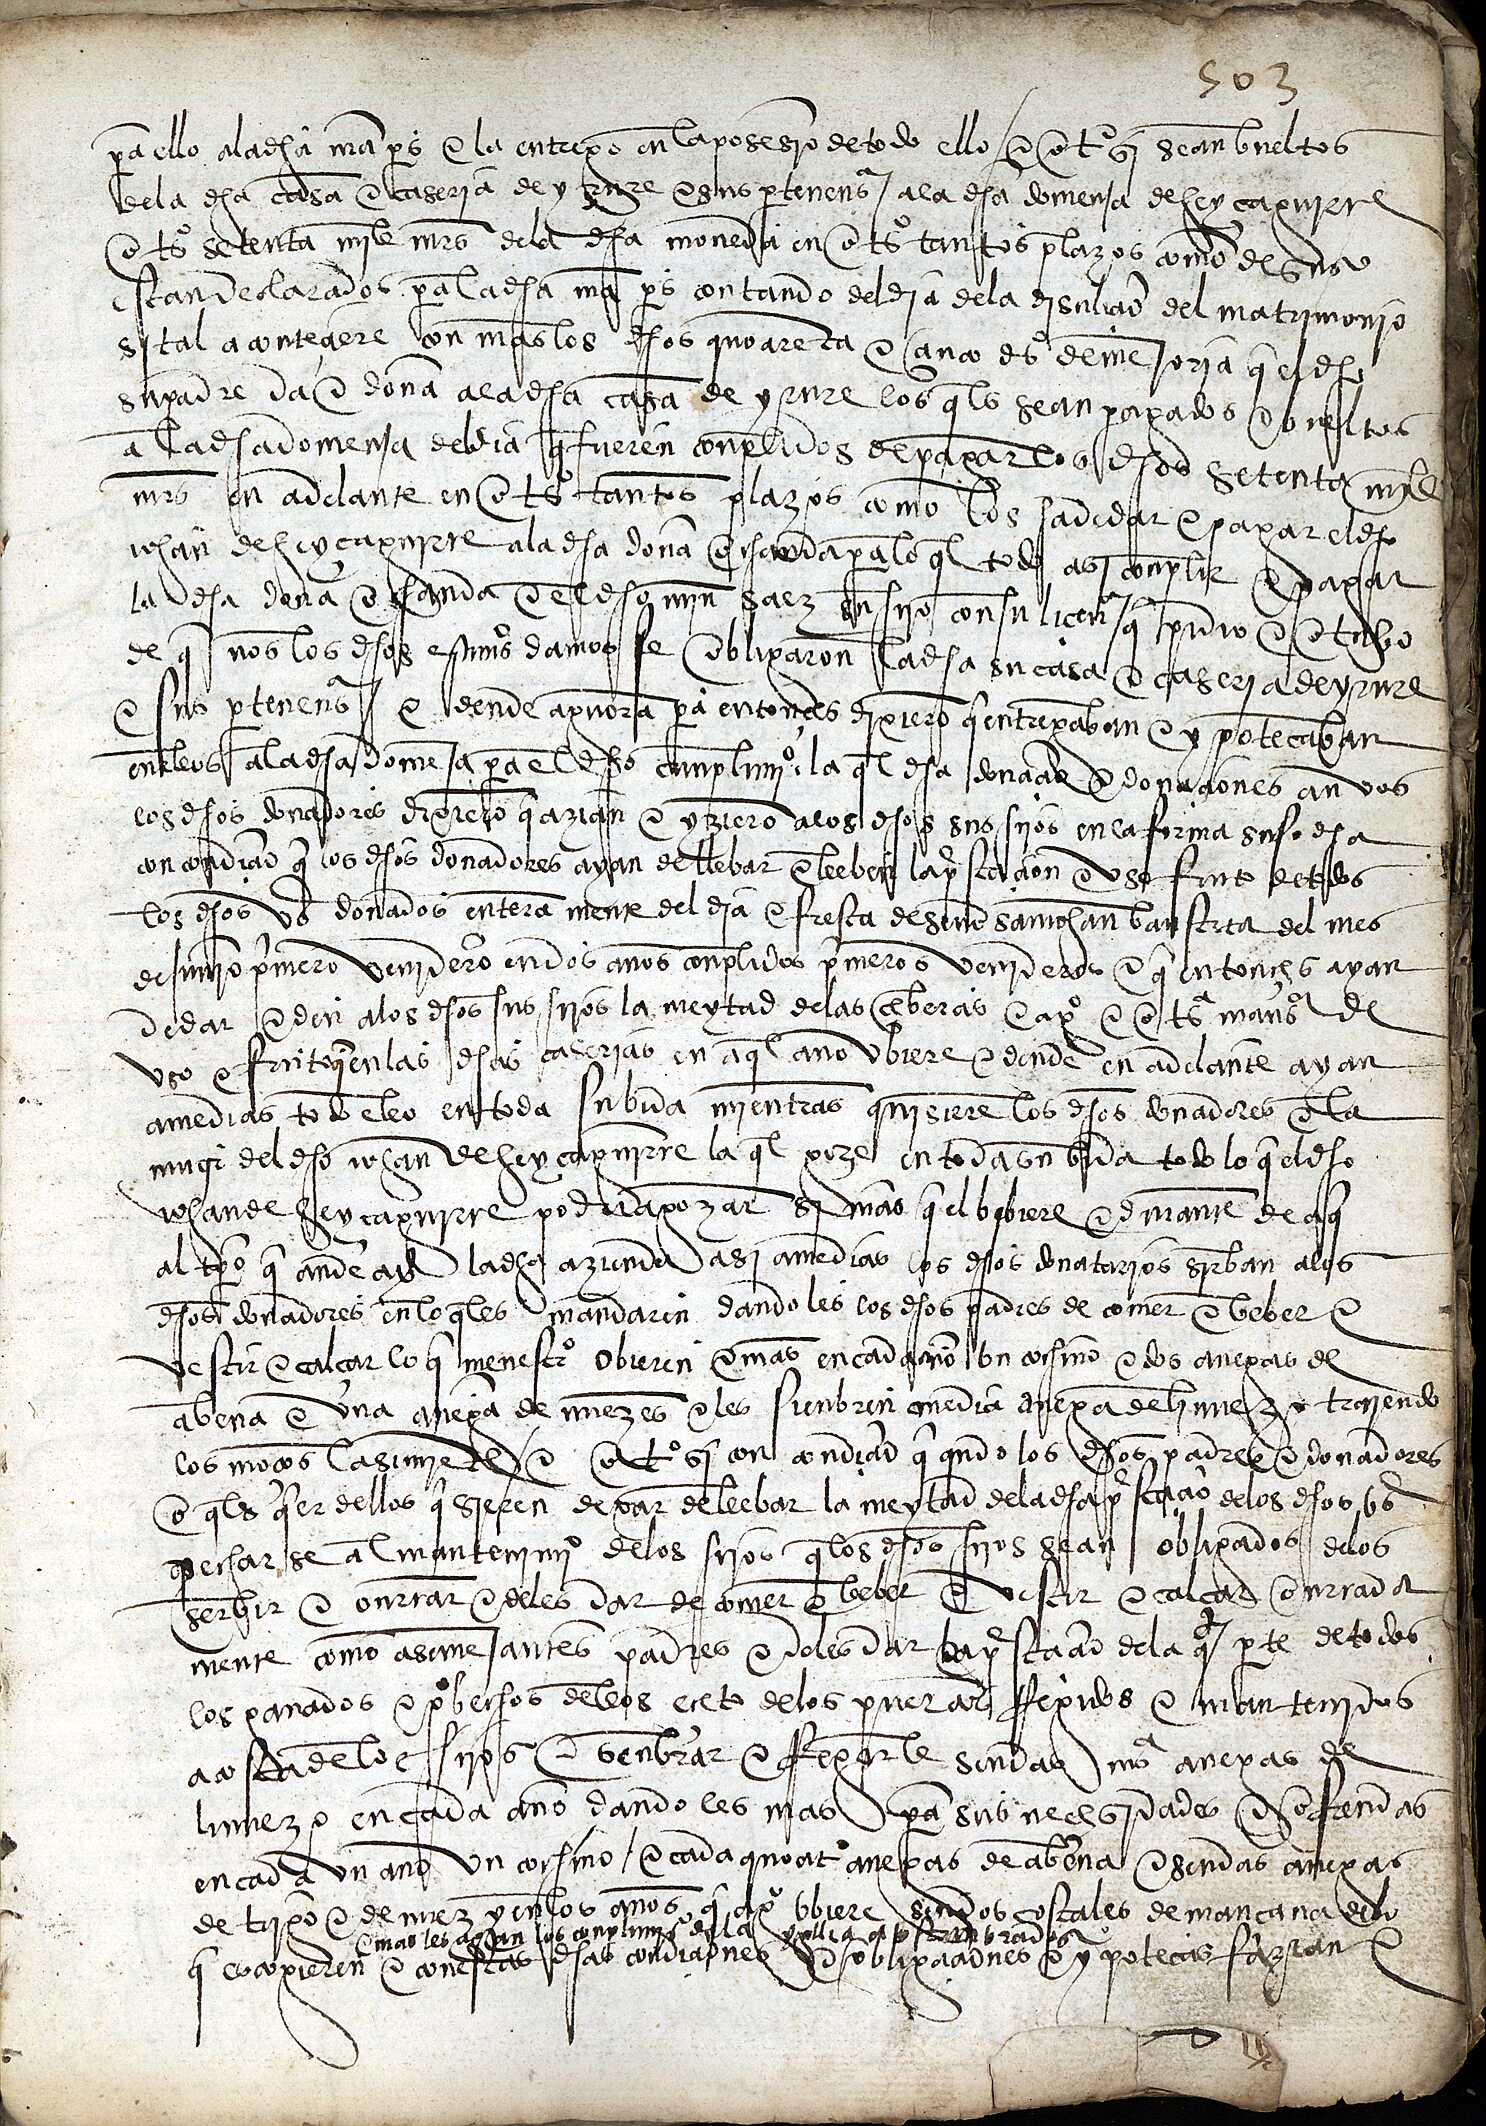 503
pa ello a la dha mari ps e la entrego en la posesion de todo ello / e otro si sean bueltos
de la dha casa e caseria de yrure e sus pertenençias / a la dha domenja de heyçaguirre
otros setenta mill mrs de la dha moneda en otros tantos plazos como de suso
estan declarados pa la dha mari ps contando del dia de la disoluçion del matrimonio
si tal aconteçiere con mas los dhos quoarenta e çinco ds de mejoria q el dho
su padre da e dona a la dha casa de yrure los qls sean pagados e bueltos
a la dha domenja del dia q fueren conplidos de pagar los dhos setenta mill
mrs en adelante en otros tantos plazos como los ha de dar e pagar el dho
johan de heyçaguirre a la dha dona otxanda pa lo ql todo asi conplir e pagar
la dha dona otxanda e el dho min saez su fijo con su liçençia / q pidio e otubo
de q nos los dhos esnos damos fe obligaron la dha su casa e caseria de yrure
e sus pertenençias / e dende agora pa entonçes dixieron q entregaban e ypotecaban
en ellos a la dha domenja pa el dho cunplimio la ql dha donaçion e donaçiones anbos
los dhos donadores dixieron q azian e yzieron a los dhos sus fijos en la forma suso dha
con condiçion q los dhos donadores ayan de llebar e lleben la prestaçion e uso fruto de todos
los dhos bs donados enteramente del dia e fiesta de senor san johan bautista del mes
de junio primero venidero en dos anos conplidos primeros venideros e q entonçes ayan
de dar e den a los dhos sus fijos la meytad de las çeberas e ago e otras mansa de
uso e fruto q en las dhas caserias en aql ano ubiere e dende en adelante ayan
a medias todo ello en toda su bida mientras quisieren los dhos donadores e la
muger del dho johan de heyçaguirre la ql goze en toda su bida todo lo q el dho
johan de heyçaguirre podria gozar si mas q el bibiere e durante de aqui
al tpo q ande aya la dha azienda asi a medias los dhos donatarios sirban a los
dhos donadores en lo q les mandaren dandoles los dhos padres de comer e beber e
vestir e calçar lo q menester obieren e mas en cada ano un cochino e dos anegas de
abena e una anega de nuezes e les sienbren media anega de linuezo trayendo
los moços la simiente / e otro si con condiçion q quando los dhos padres e donadores
o qls quier dellos quisieren dexar de llebar la meytad de la dha prestaçion de los dhos bs
e echarse al mantenimio de los fijos q los dhos fijos sean obligados de los
serbir e onrrar e de les dar de comer e beber e vestir e calçar onrrada
mente como a semejantes padres e de les dar la prestaçion de la qta parte de todos
los ganados e probechos dellos eçeto de los puercos rregidos e mantenidos
a costa de los fijos e senbrar e rregerle sendas mas anegas de
linuezo en cada ano dandoles mas pa sus neçesidades e ofrendas
en cada un ano un cochino / e cada quoatro anegas de abena e sendas anegas
de trigo e de nuez y en los anos q ago ubiere sendos costales de mançana de lo
e mas les agan los conplimios de la yglia acostunbrados
q escogieren e con estas dhas condiçiones e obligaçiones e ypotecas fazian e